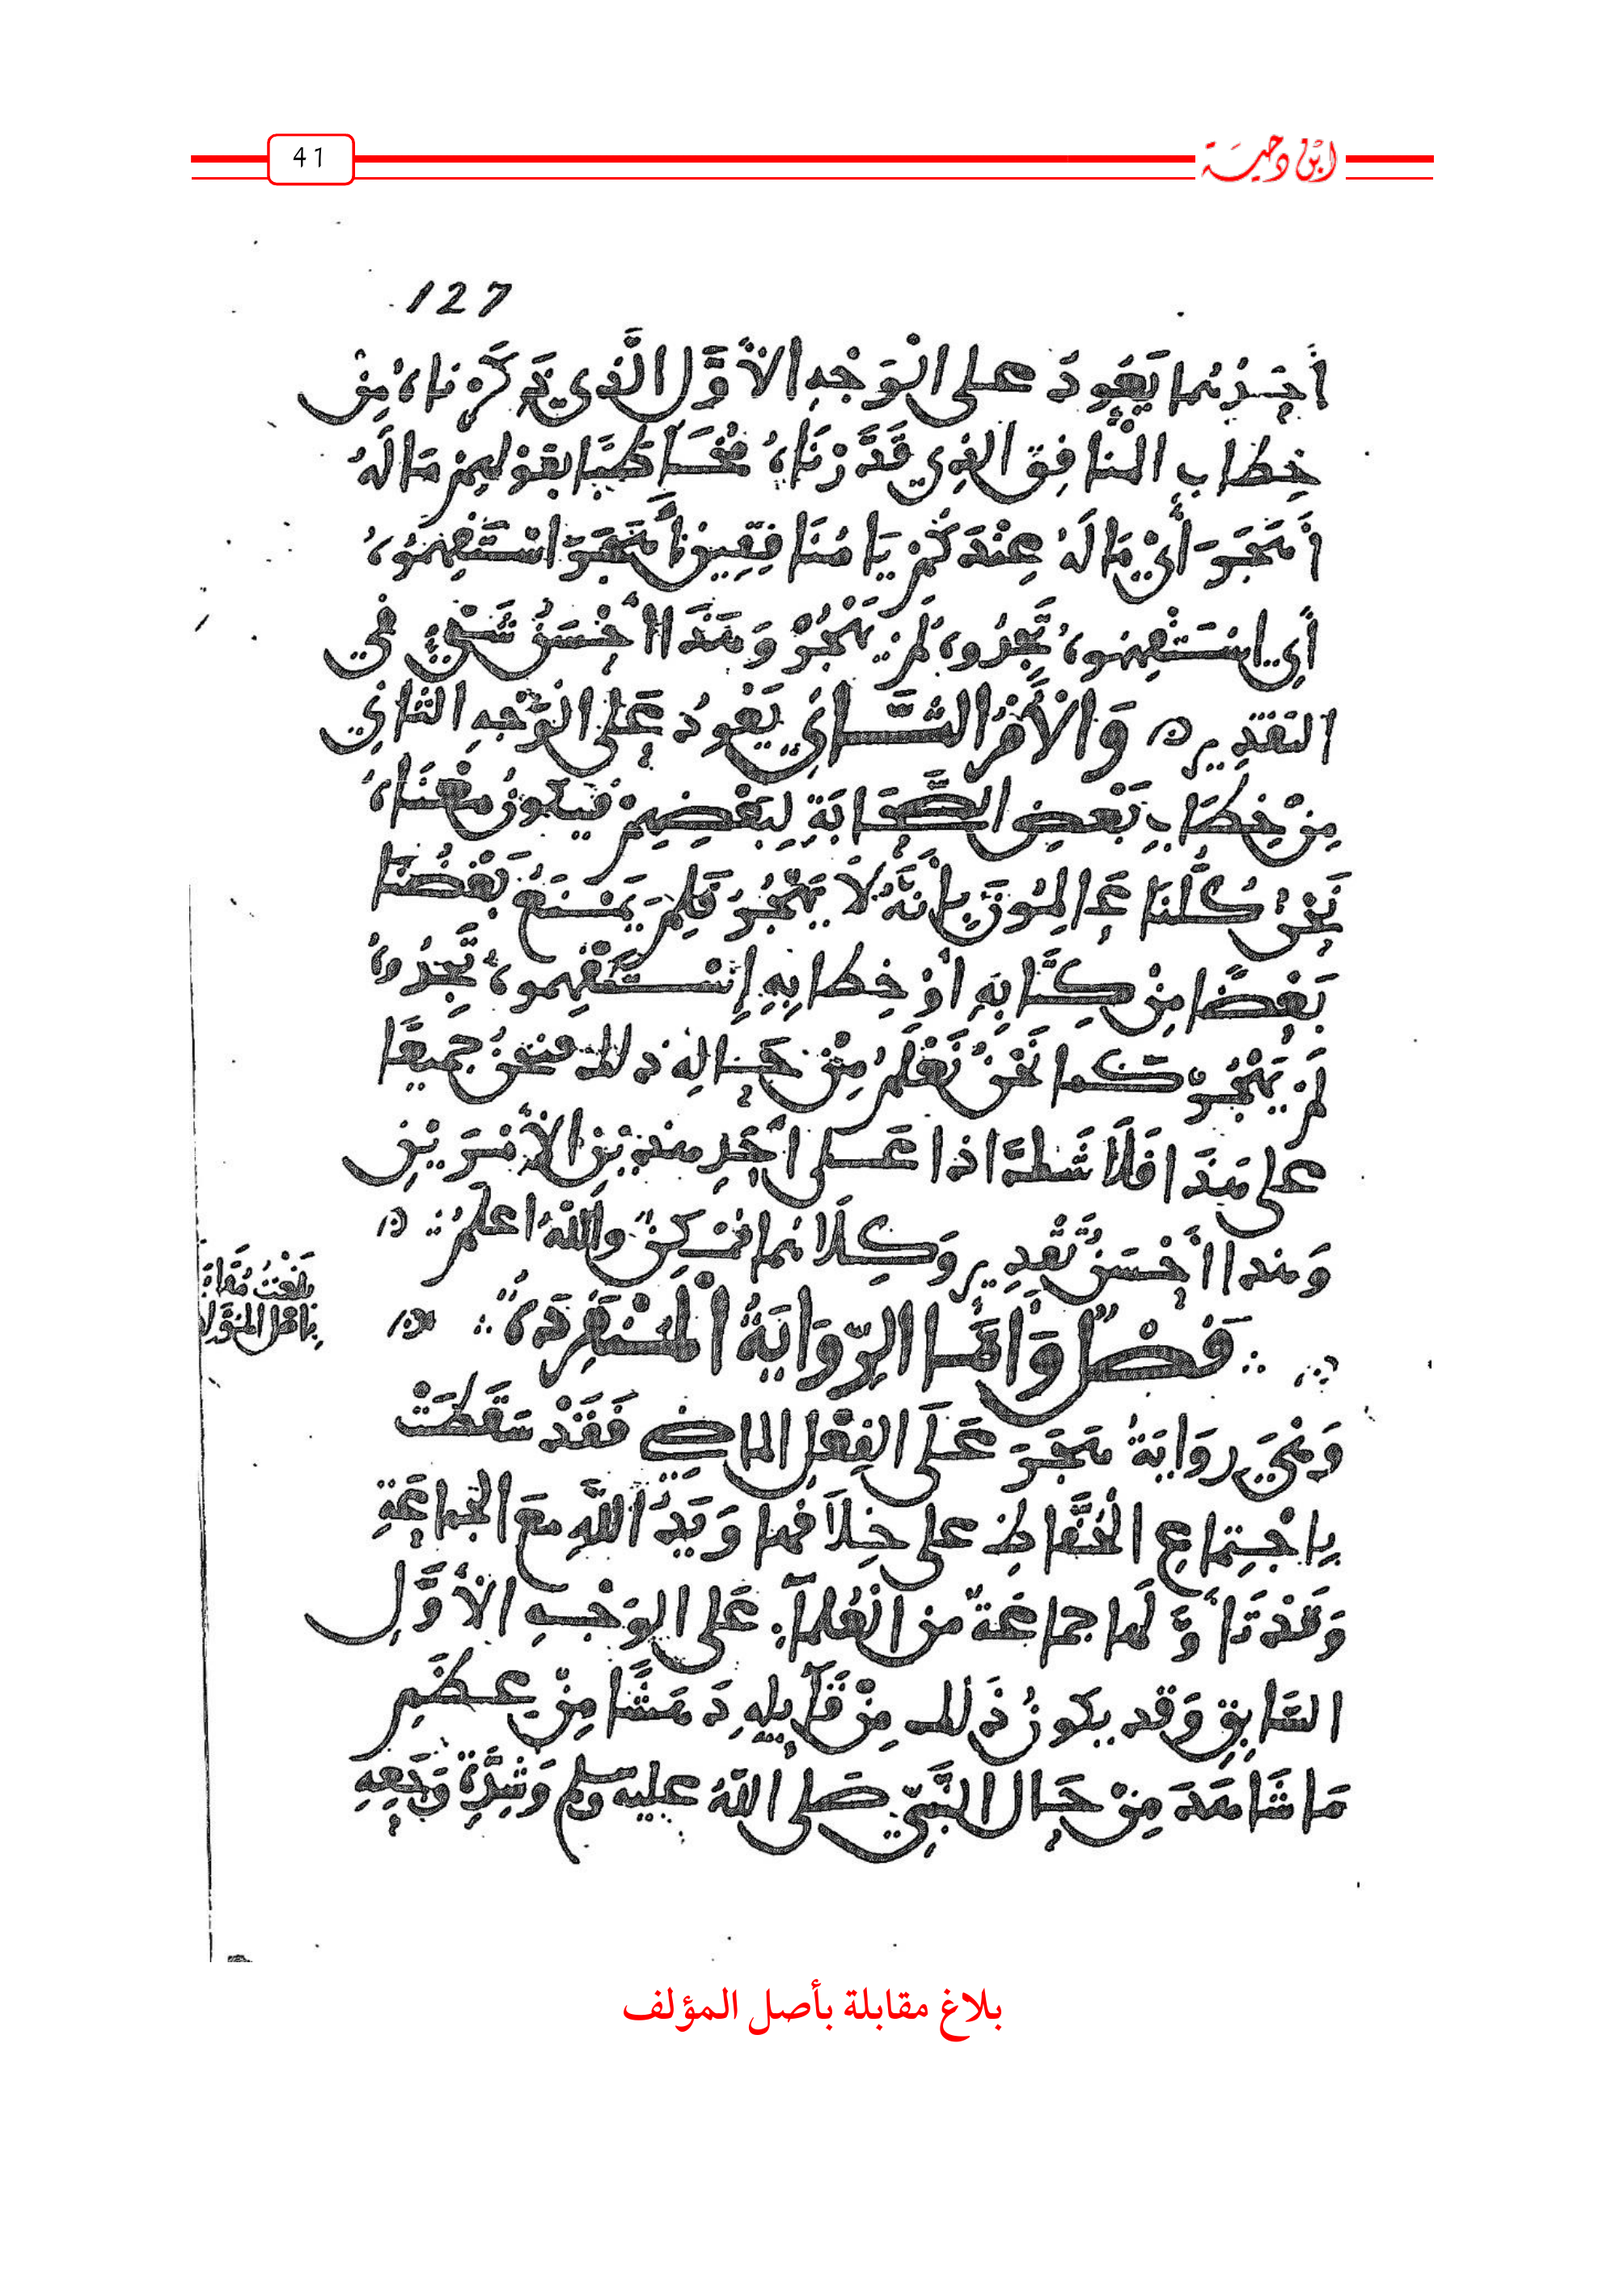 41
ابن دحية
127
أَحَدُهُما يَعُودُ على الْوَجْهِ الأوَّلِ الَّذي ذكَرْناهُ مِنْ
خِطابِ المنافِقِ الذِي قَدَّرْنَاهُ مُخَاطَبًا بقَوْلِهِمْ مَا لَهُ
أَهَجَرَ أيْ مَا لَهُ عِنْدَكُمْ يَا مُنَافِقِينَ أَهَجَرَ اسْتَفْهِمُوهُ
أي اسْتَفْهِمُوهُ تَجِدُوهُ لَمْ يَهْجُرْ وَهَذَا أَحْسَنُ شَيْءٍ في
التقديرِ وَالأَمْرُ الثَّانِي يَعُودُ عَلى الْوَجْهِ الثانِي
مِنْ خِطَابِ بَعْضِ الصَّحَابَةِ لِبَعْضِهِمْ فيكونُ مَعْنَاهُ
نَحْنُ كُلُّنَا عَالِمُونَ بِأنَّهُ لَا يَهْجُرُ فَلِمَ يَمْنَعُ بَعْضُنَا
بَعْضًا مِنْ كِتَابِهِ أوْ خِطابِهِ إسْتَفْهِموهُ تَجِدُوهُ
لَمْ يَهْجُرْ كما نَحْنُ نَعْلَمُ مِنْ حَالِهِ ذلك فنحنُ جَمِيعًا
على هَذَا فَلَا شَكَّ اذا عَلى أحَدِ هذيْنِ الأمْرَيْنِ
وَهذا أحْسَنُ تَقْدِيرٍ وَكِلَاهُما مُمْكِنٌ واللهُ اعلمُ
فَصْلٌ وَأمَّا الرِّوَايَةُ الْمُنْفَرِدَةُ
وَهْيَ رِوَايَةُ هَجَرَ عَلَى الفِعْلِ الماضي فَقَدْ سَقَطَتْ
بِاجْتِماعِ الحُفَّاظِ على خِلَافِها وَيَدُ اللَّهِ معَ الجماعَةِ
وَقَدْ تَأوَّلَها جماعَةٌ من الْعُلَمآءِ عَلى الوَجْهِ الأوَّلِ
السَّابِقِ وَقد يكونُ ذَلك مِنْ قَآئِلِهِ دَهَشًا مِنْ عِظَمِ
مَا شَاهَدَ مِنْ حَالِ النَّبِيِّ صَلى اللهُ عليه وسلم وَشِدَّةِ وَجَعِهِ
بلغتُ مُقابلة
بأصل المؤلف
بلاغ مقابلة بأصل المؤلف